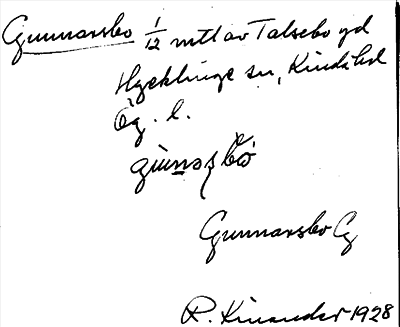 Gunnarsbo 1/12 mtl av Talsebo yd
Hycklinge sn, Kinds hd
Ög. l.
gùnaʂbò
Gunnarsbo Eg
R. Kinander 1928